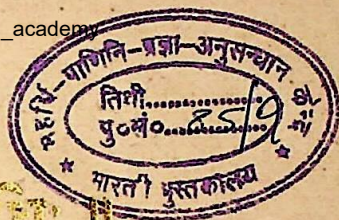 _academy
महर्षि-पाणिनि-प्रज्ञा-अनुसन्धान
तिथी..............
पु०सं०
भारती पुस्तकालय